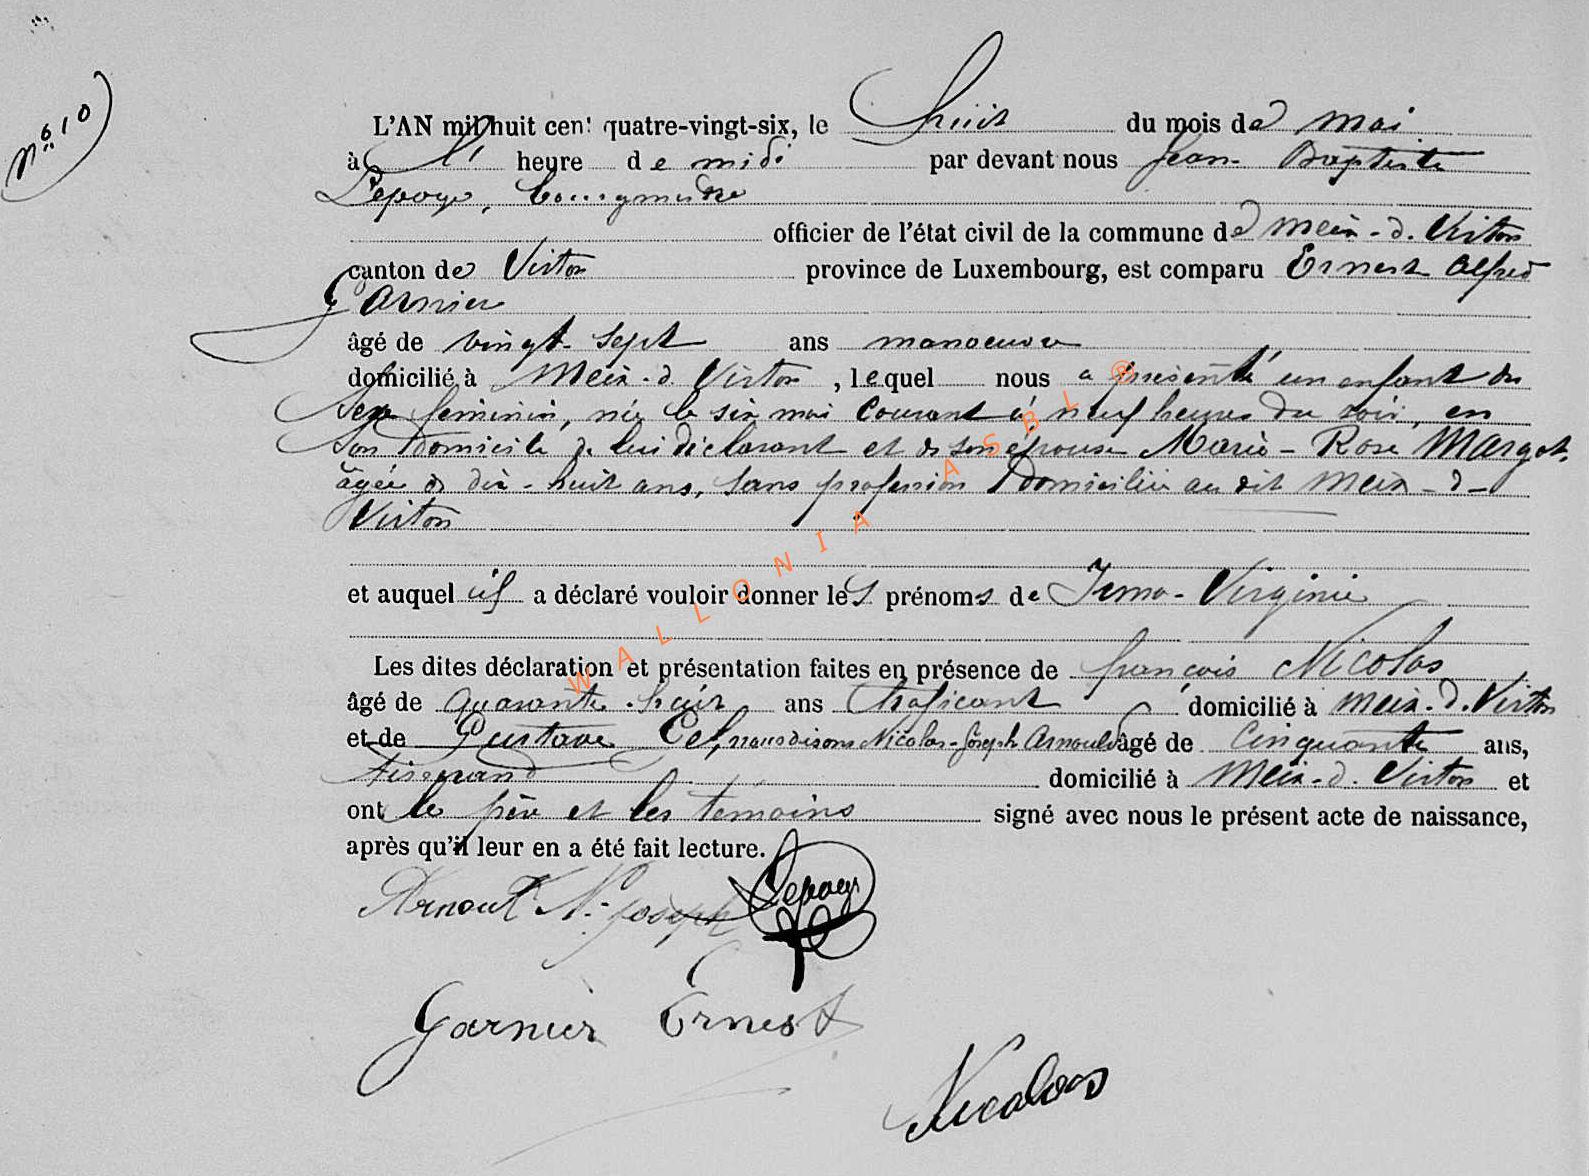 N° 10
L'AN mil huit cent quatre-vingt-six, le huit du mois de mai
à l' heure de midi par devant nous Jean-Baptiste
Lepage, bourgmestre
officier de l'état civil de la commune de Meix-d.Virton
canton de Virton province de Luxembourg, est comparu Ernest Alfred
Garnier
âgé de vingt-sept ans manoeuvre
domicilié à Meix-d.Virton, lequel nous a présenté un enfant du
sexe féminin, née le six mai courant à neuf heures du soir, en
son domicile de lui déclarant et de son épouse Marie-Rose Margot,
âgée de dix-huit ans, sans profession domiciliée au dit Meix-d-
Virton
et auquel il a déclaré vouloir donner les prénoms de Irma-Virginie
Les dites déclaration et présentation faites en présence de françois Nicolas
âgé de quarante-huit ans traficant domicilié à Meix-d.Virton
et de Gustave nous disons Nicolas-Joseph Arnould âgé de cinquante ans,
tisserand domicilié à Meix-d.Virton et
ont le père et les témoins signé avec nous le présent acte de naissance,
après qu'il leur en a été fait lecture.
Arnould N. Joseph Lepage
Garnier Ernest
Nicolas
WALLONIA ASBL ®